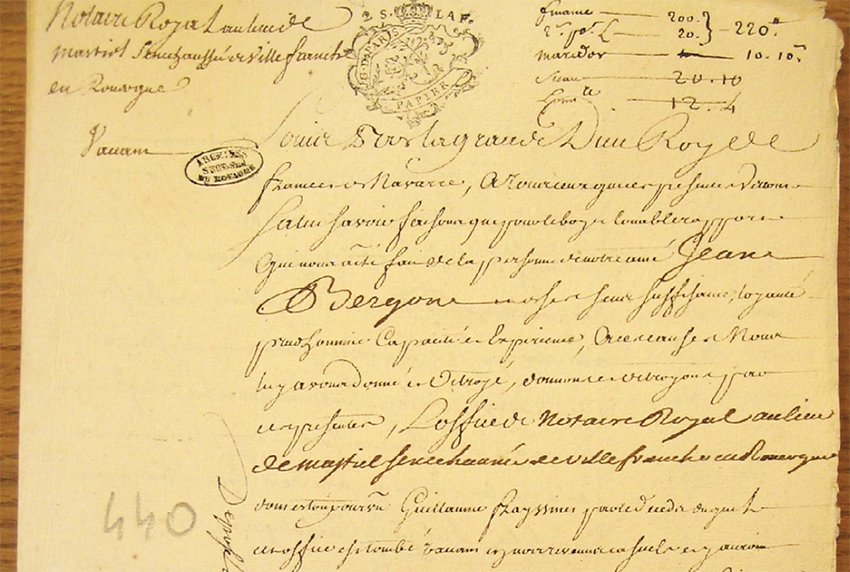 Notaire Royal au lieu de
martiel Senechaussée de Ville franche
en Rouergue
Vacant
2 S. LAF.
G. D PARIS
PAPIER
finance 200.
20. 220
marc d'or 10. 10
Sceau 20. 10
12. 4
ARCHIVES
SECRETES
DU ROYAUME
Louis Par la grace de Dieu Roy de
france et de Navarre, A tous ceux qui ces presentes verront
Salut savoir faisons que pour le bon et louable rapport
qui nous a été fait de la personne de notre amé Jean
Bergon et de ses sens suffisance, loyauté
prud'hommie Capacité et Experience, A ces causes Nous
luy avons donné et Octroyé, donnons et octroyons par
ces presentes, L'office de Notaire Royal au lieu
de martiel senechaussée de ville franche en Rouergue
dont etoit pourvu Guillaume Frayssines par le deces duquel
cet office est tombé vacant en nos revenus casuels et
440